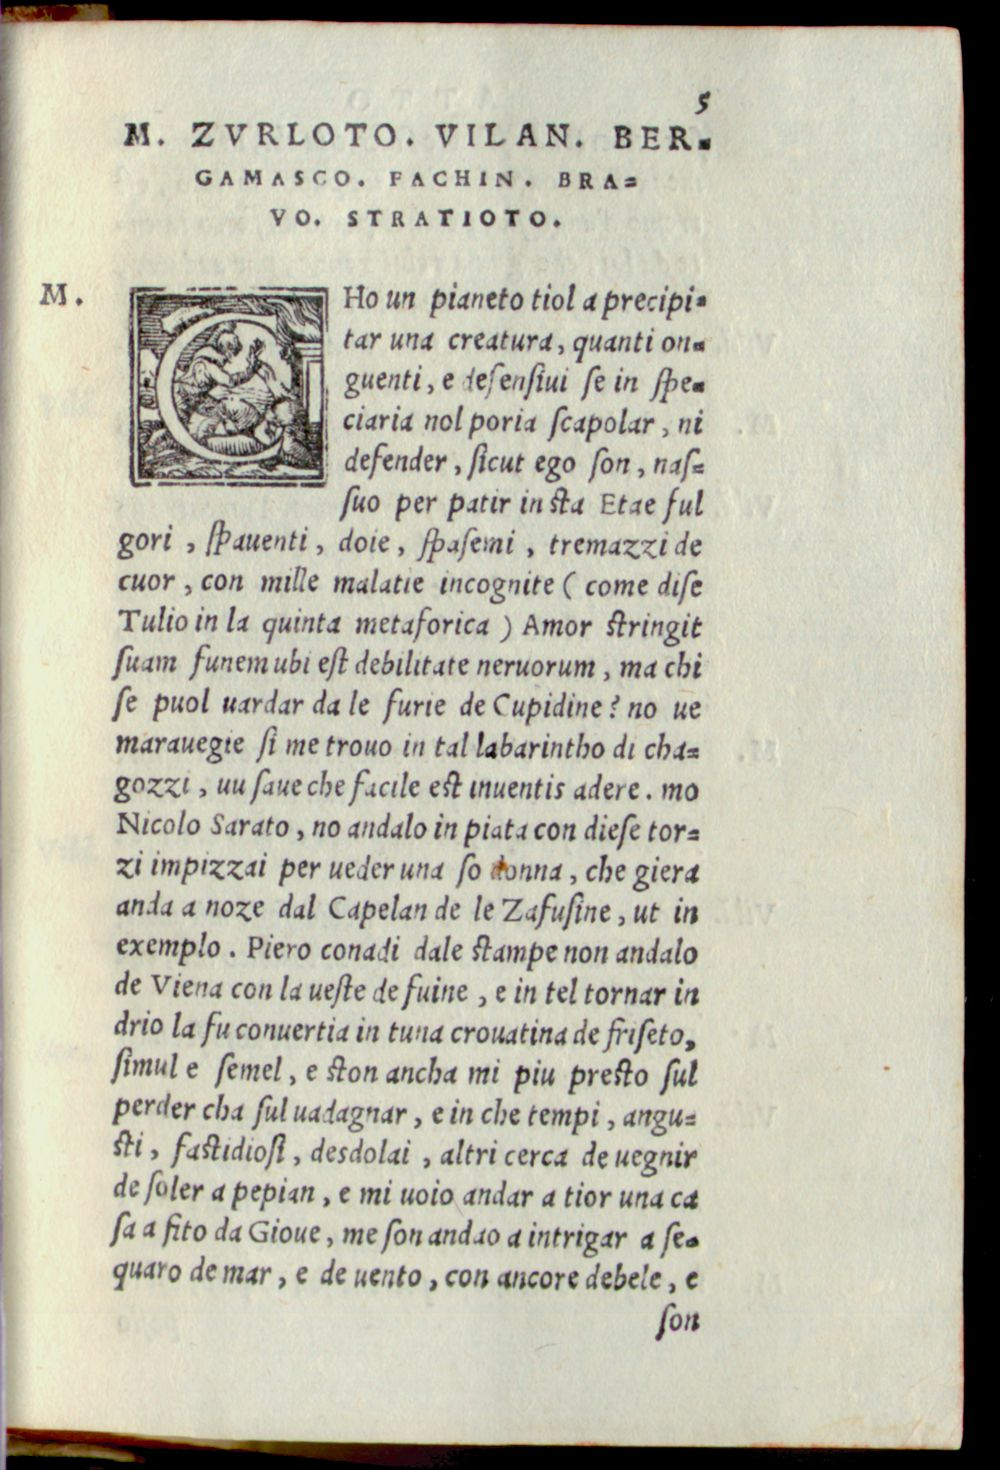 5
M. ZVRLOTO. VILAN. BER-
GAMASCO. FACHIN. BRA=
VO. STRATIOTO.
M.
CHo un pianeto tiol a precipi-
tar una creatura, quanti on-
guenti, e defenſiui ſe in ſpe-
ciaria nol poria ſcapolar, ni
defender, ſicut ego ſon, naſ=
ſuo per patir in ſta Etae ful
gori, ſpauenti, doie, ſpaſemi, tremazzi de
cuor, con mille malatie incognite ( come diſe
Tulio in la quinta metaforica ) Amor ſtringit
ſuam funem ubi eſt debilitate neruorum, ma chi
ſe puol uardar da le furie de Cupidine? no ue
marauegie ſi me trouo in tal labarintho di cha=
gozzi, uu ſaue che facile eſt inuentis adere. mo
Nicolo Sarato, no andalo in piata con dieſe tor=
zi impizzai per ueder una ſo donna, che giera
anda a noze dal Capelan de le Zafuſine, ut in
exemplo. Piero conadi dale ſtampe non andalo
de Viena con la ueſte de fuine, e in tel tornar in
drio la fu conuertia in tuna crouatina de friſeto,
ſimul e ſemel, e ſton ancha mi piu preſto ſul
perder cha ſul uadagnar, e in che tempi, angu=
ſti, faſtidioſi, desdolai, altri cerca de uegnir
de ſoler a pepian, e mi uoio andar a tior una ca
ſa a fito da Gioue, me ſon andao a intrigar a ſe-
quaro de mar, e de uento, con ancore debele, e
ſon